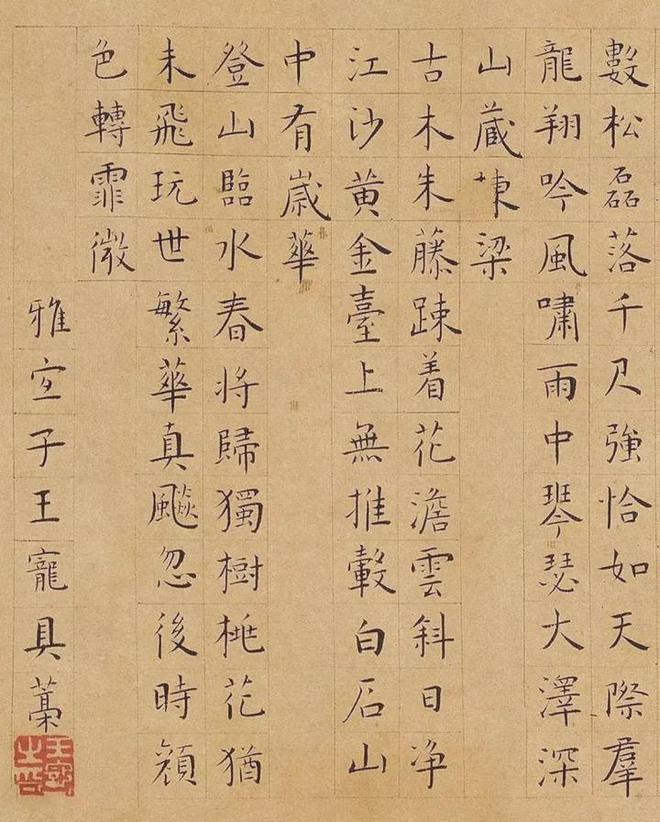 數松磊落千尺強恰如天際羣
龍翔吟風嘯雨中琴瑟大澤深
山蔵棟梁
古木朱藤踈着花澹雲斜日净
江沙黄金臺上無推轂白石山
中有嵗華
登山臨水春将歸獨樹桃花猶
未飛玩世繁華真飈忽後時顔
色轉霏微
雅宜子王寵具藳